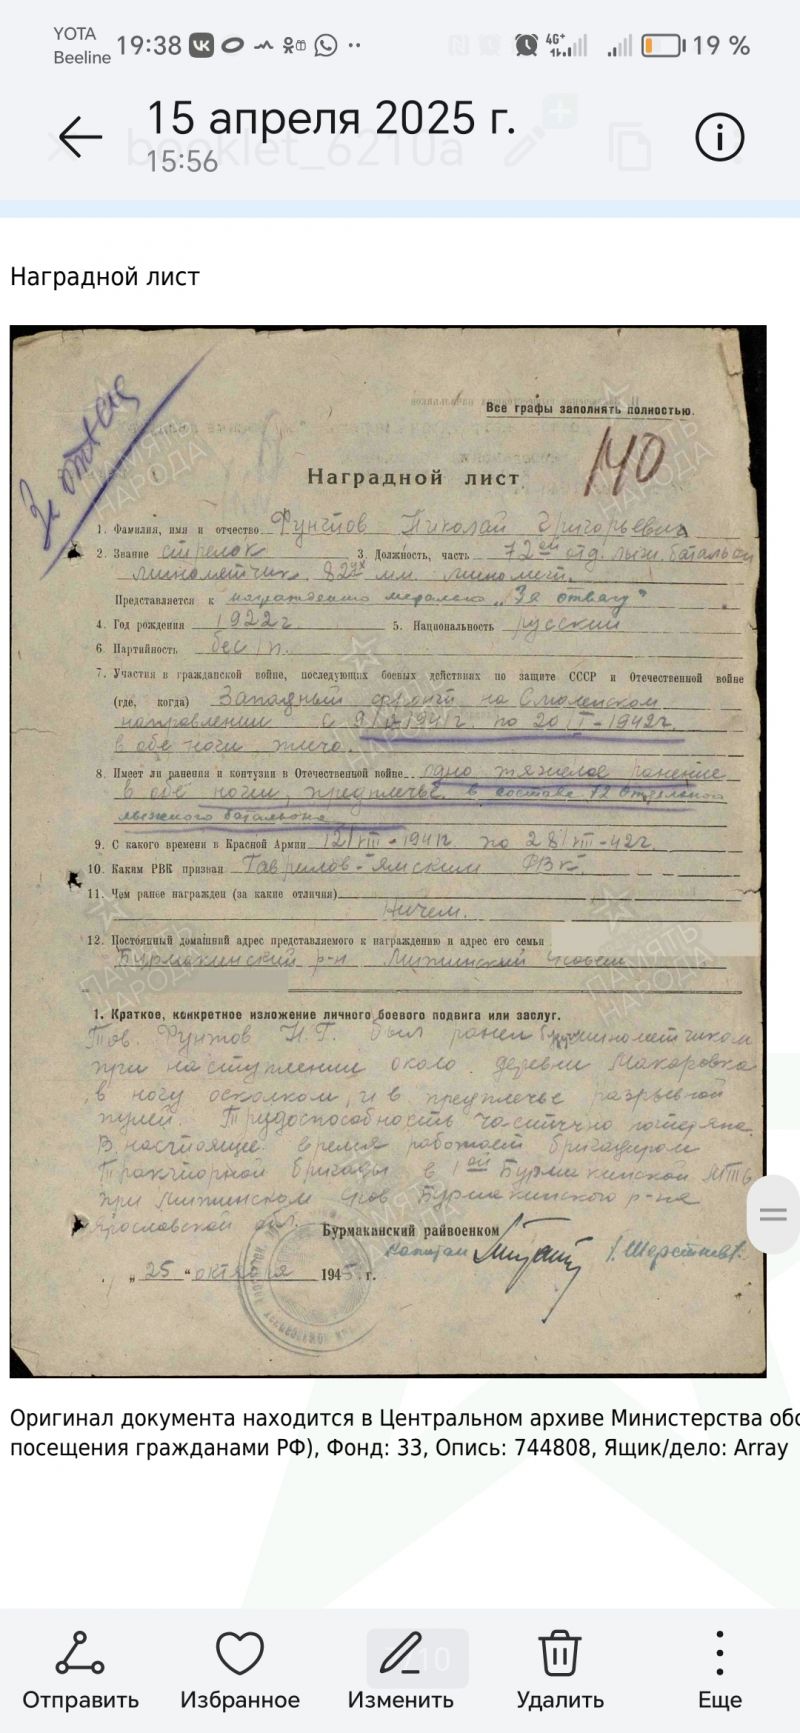 YOTA
Beeline 19:38 4G+ 19 %
15 апреля 2025 г.
booklet_6210a
15:56
Наградной лист
За отвагу
Все графы заполнять полностью.
140
Наградной лист
1. Фамилия, имя и отчество Фунтов Николай Григорьевич
2. Звание стрелок 3. Должность, часть 72ой отд. лыжн. батальон
минометчик 82ух мм. миномет.
Представляется к награждению медалью „За отвагу"
4. Год рождения 1922 г. 5. Национальность русский
6. Партийность бес/п.
7. Участия в гражданской войне, последующих боевых действиях по защите СССР и Отечественной войне
(где, когда) Западный фронт на Смоленском
направлении с по 20 1942 г.
в обе ноги
8. Имеет ли ранения и контузии в Отечественной войне одно тяжелое ранение
в обе ноги, предплечье в составе 72 отдельного
лыжного батальона
9. С какого времени в Красной Армии 12/VIII-1941г. по 28/VIII-42г.
10. Каким РВК призван Гаврилов-Ямским РВК
11. Чем ранее награжден (за какие отличия)
Ничем.
12. Постоянный домашний адрес представляемого к награждению и адрес его семьи
Бурмакинский р-н
1. Краткое, конкретное изложение личного боевого подвига или заслуг.
Тов. Фунтов Н.Г. был ранен минометчиком
при наступлении около деревни Макаровка
в ногу осколком, и в предплечье разрывной
пулей. Трудоспособность частично потеряна.
В настоящее время работает бригадиром
Тракторной бригады в 1ой Бурмакинской МТС
при Бурмакинского р-на
Ярославской обл.
Бурмаканский райвоенком
капитан
„ 25 " октября 1945 г.
ПАМЯТЬ НАРОДА
Оригинал документа находится в Центральном архиве Министерства обо
посещения гражданами РФ), Фонд: 33, Опись: 744808, Ящик/дело: Array
Отправить Избранное Изменить Удалить Еще